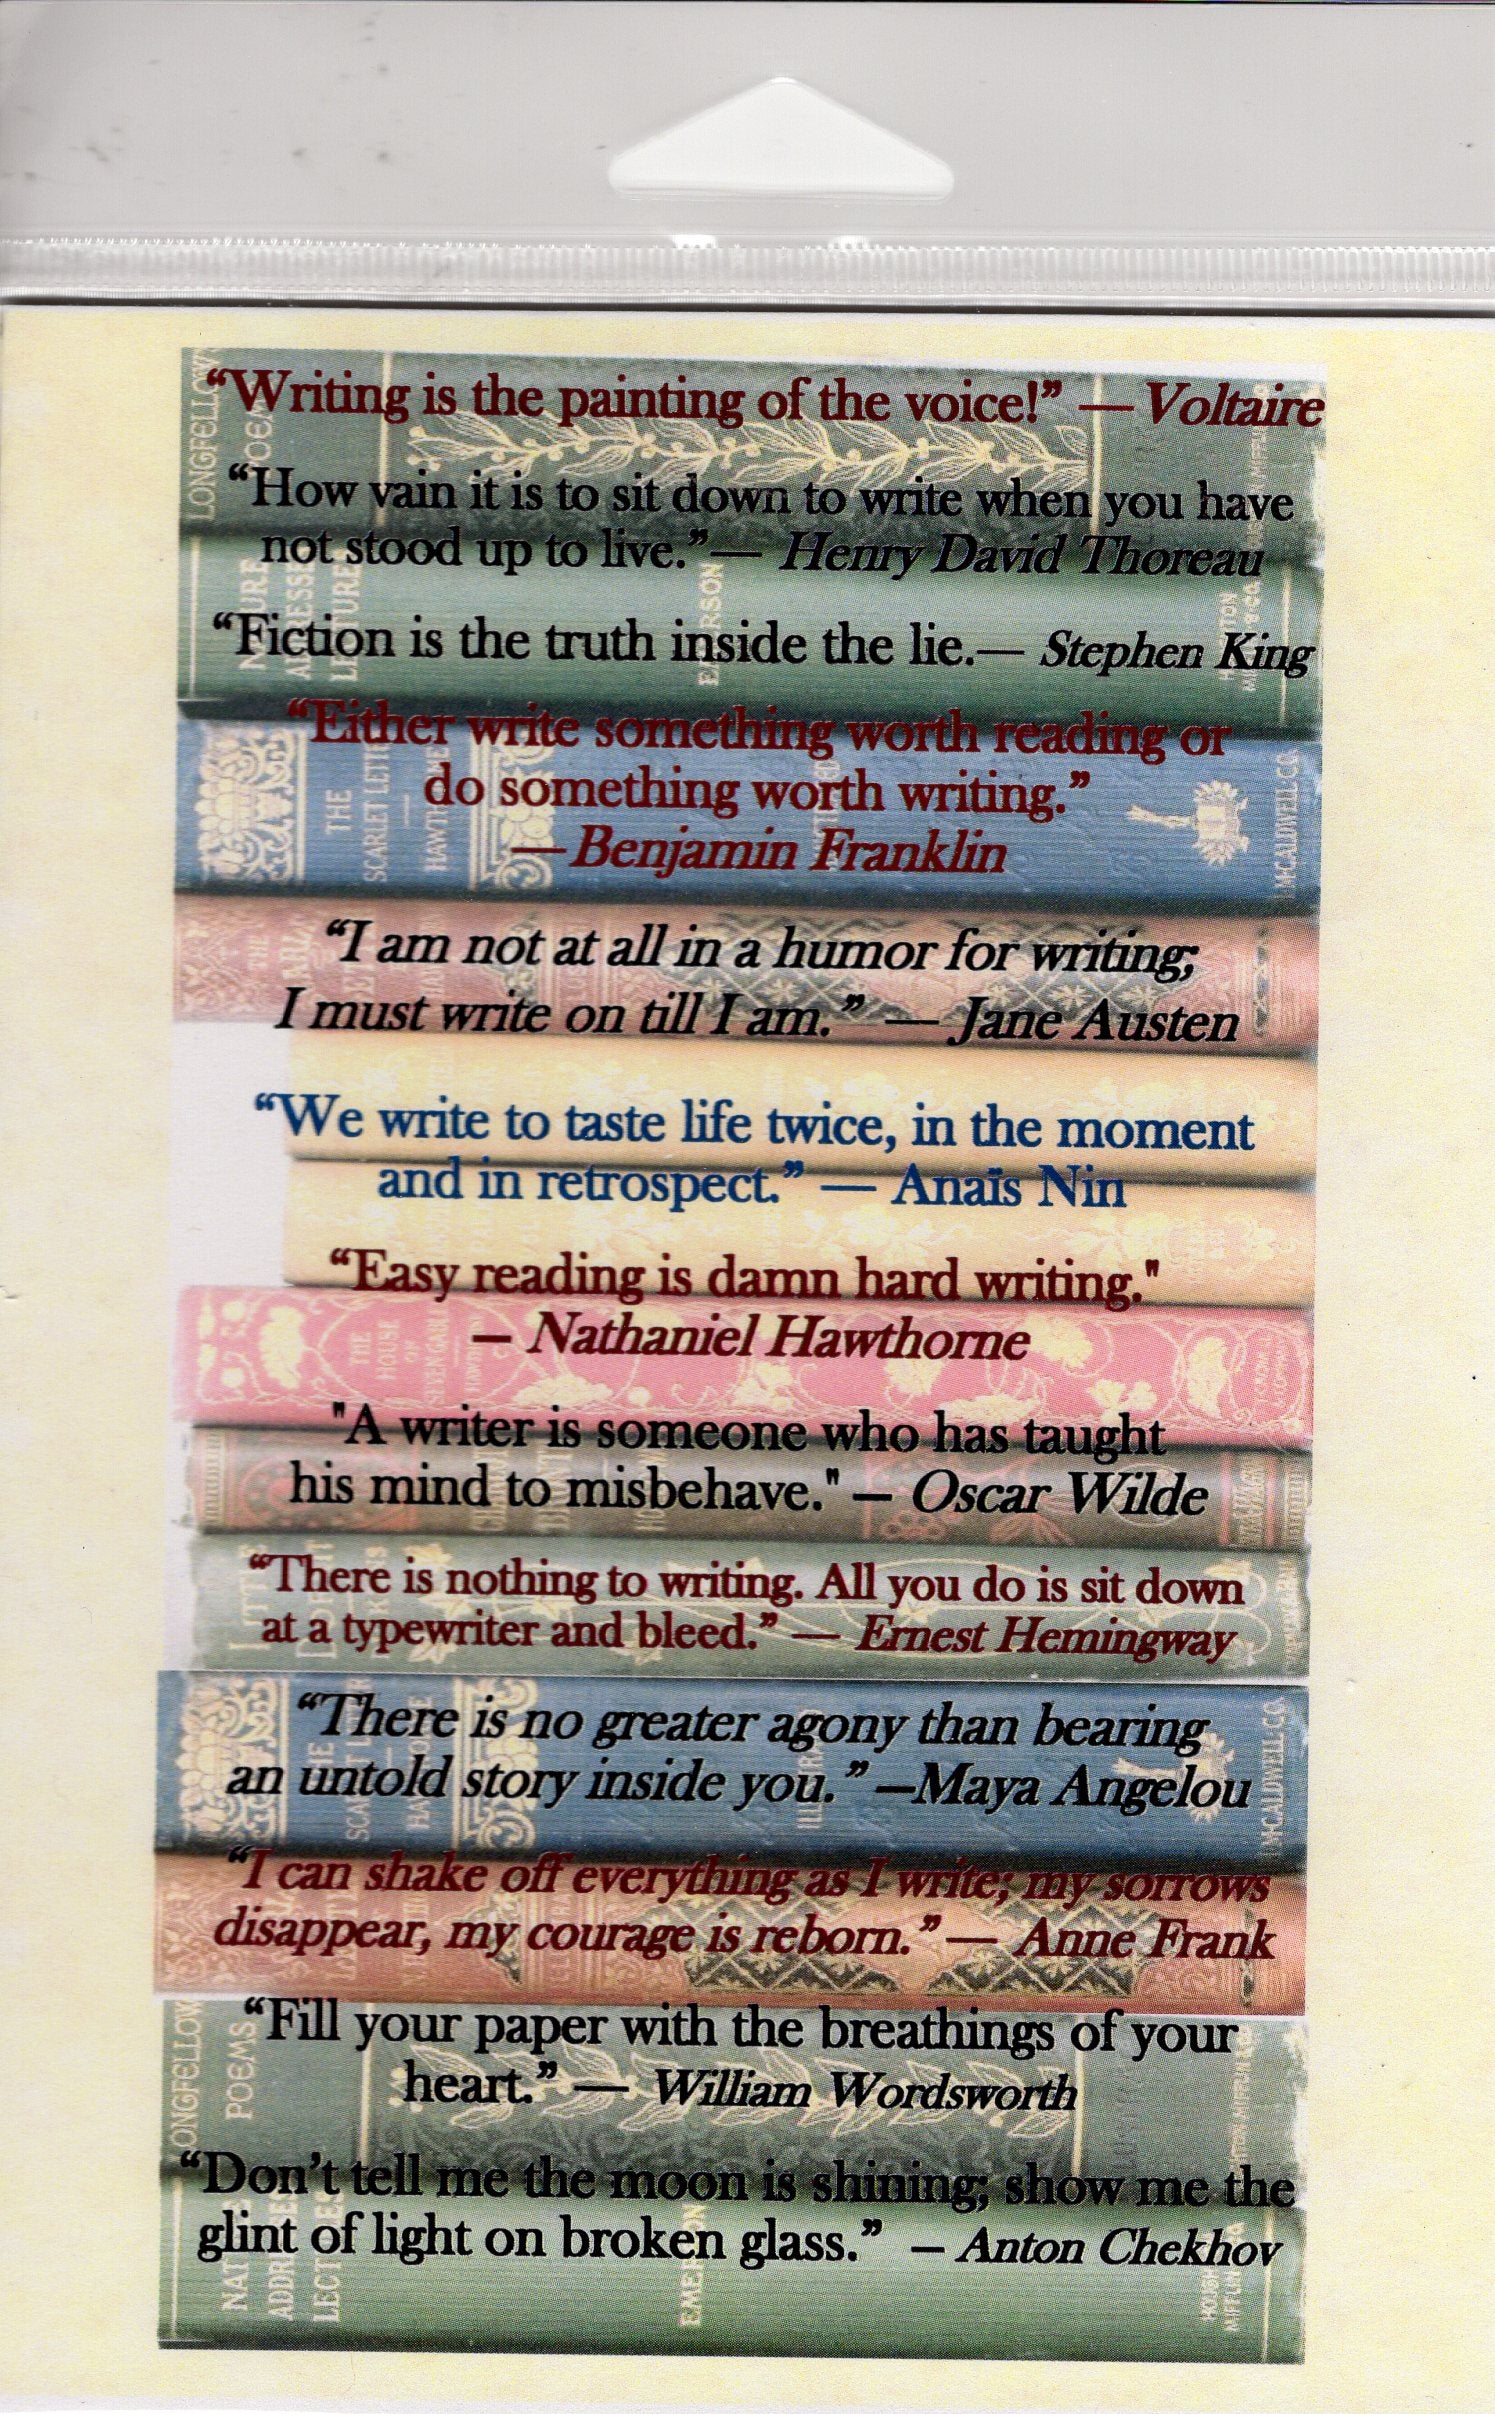 “Writing is the painting of the voice!” — Voltaire
“How vain it is to sit down to write when you have
not stood up to live.” — Henry David Thoreau
“Fiction is the truth inside the lie.— Stephen King
“Either write something worth reading or
do something worth writing.”
—Benjamin Franklin
“I am not at all in a humor for writing;
I must write on till I am.” — Jane Austen
“We write to taste life twice, in the moment
and in retrospect.” — Anaïs Nin
“Easy reading is damn hard writing."
– Nathaniel Hawthorne
"A writer is someone who has taught
his mind to misbehave." – Oscar Wilde
“There is nothing to writing. All you do is sit down
at a typewriter and bleed.” — Ernest Hemingway
“There is no greater agony than bearing
an untold story inside you.” –Maya Angelou
“I can shake off everything as I write; my sorrows
disappear, my courage is reborn.” — Anne Frank
“Fill your paper with the breathings of your
heart.” — William Wordsworth
“Don't tell me the moon is shining; show me the
glint of light on broken glass.” – Anton Chekhov
LONGFELLOW
THE
SCARLET LETTER
LONGFELLOW
POEMS